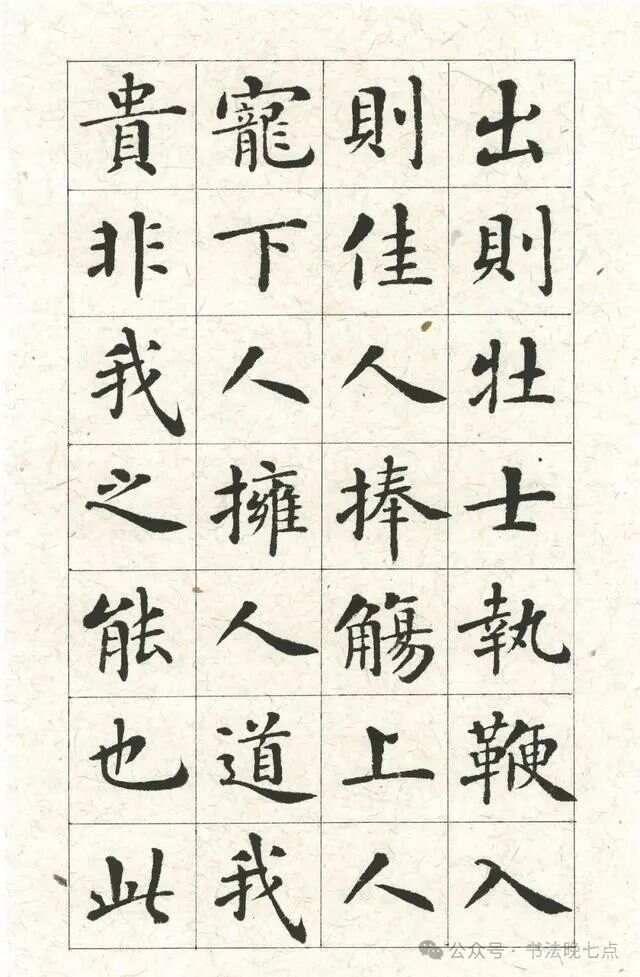 出則壯士執鞭入
則佳人捧觴上人
寵下人擁人道我
貴非我之能也此
公众号·书法晚七点